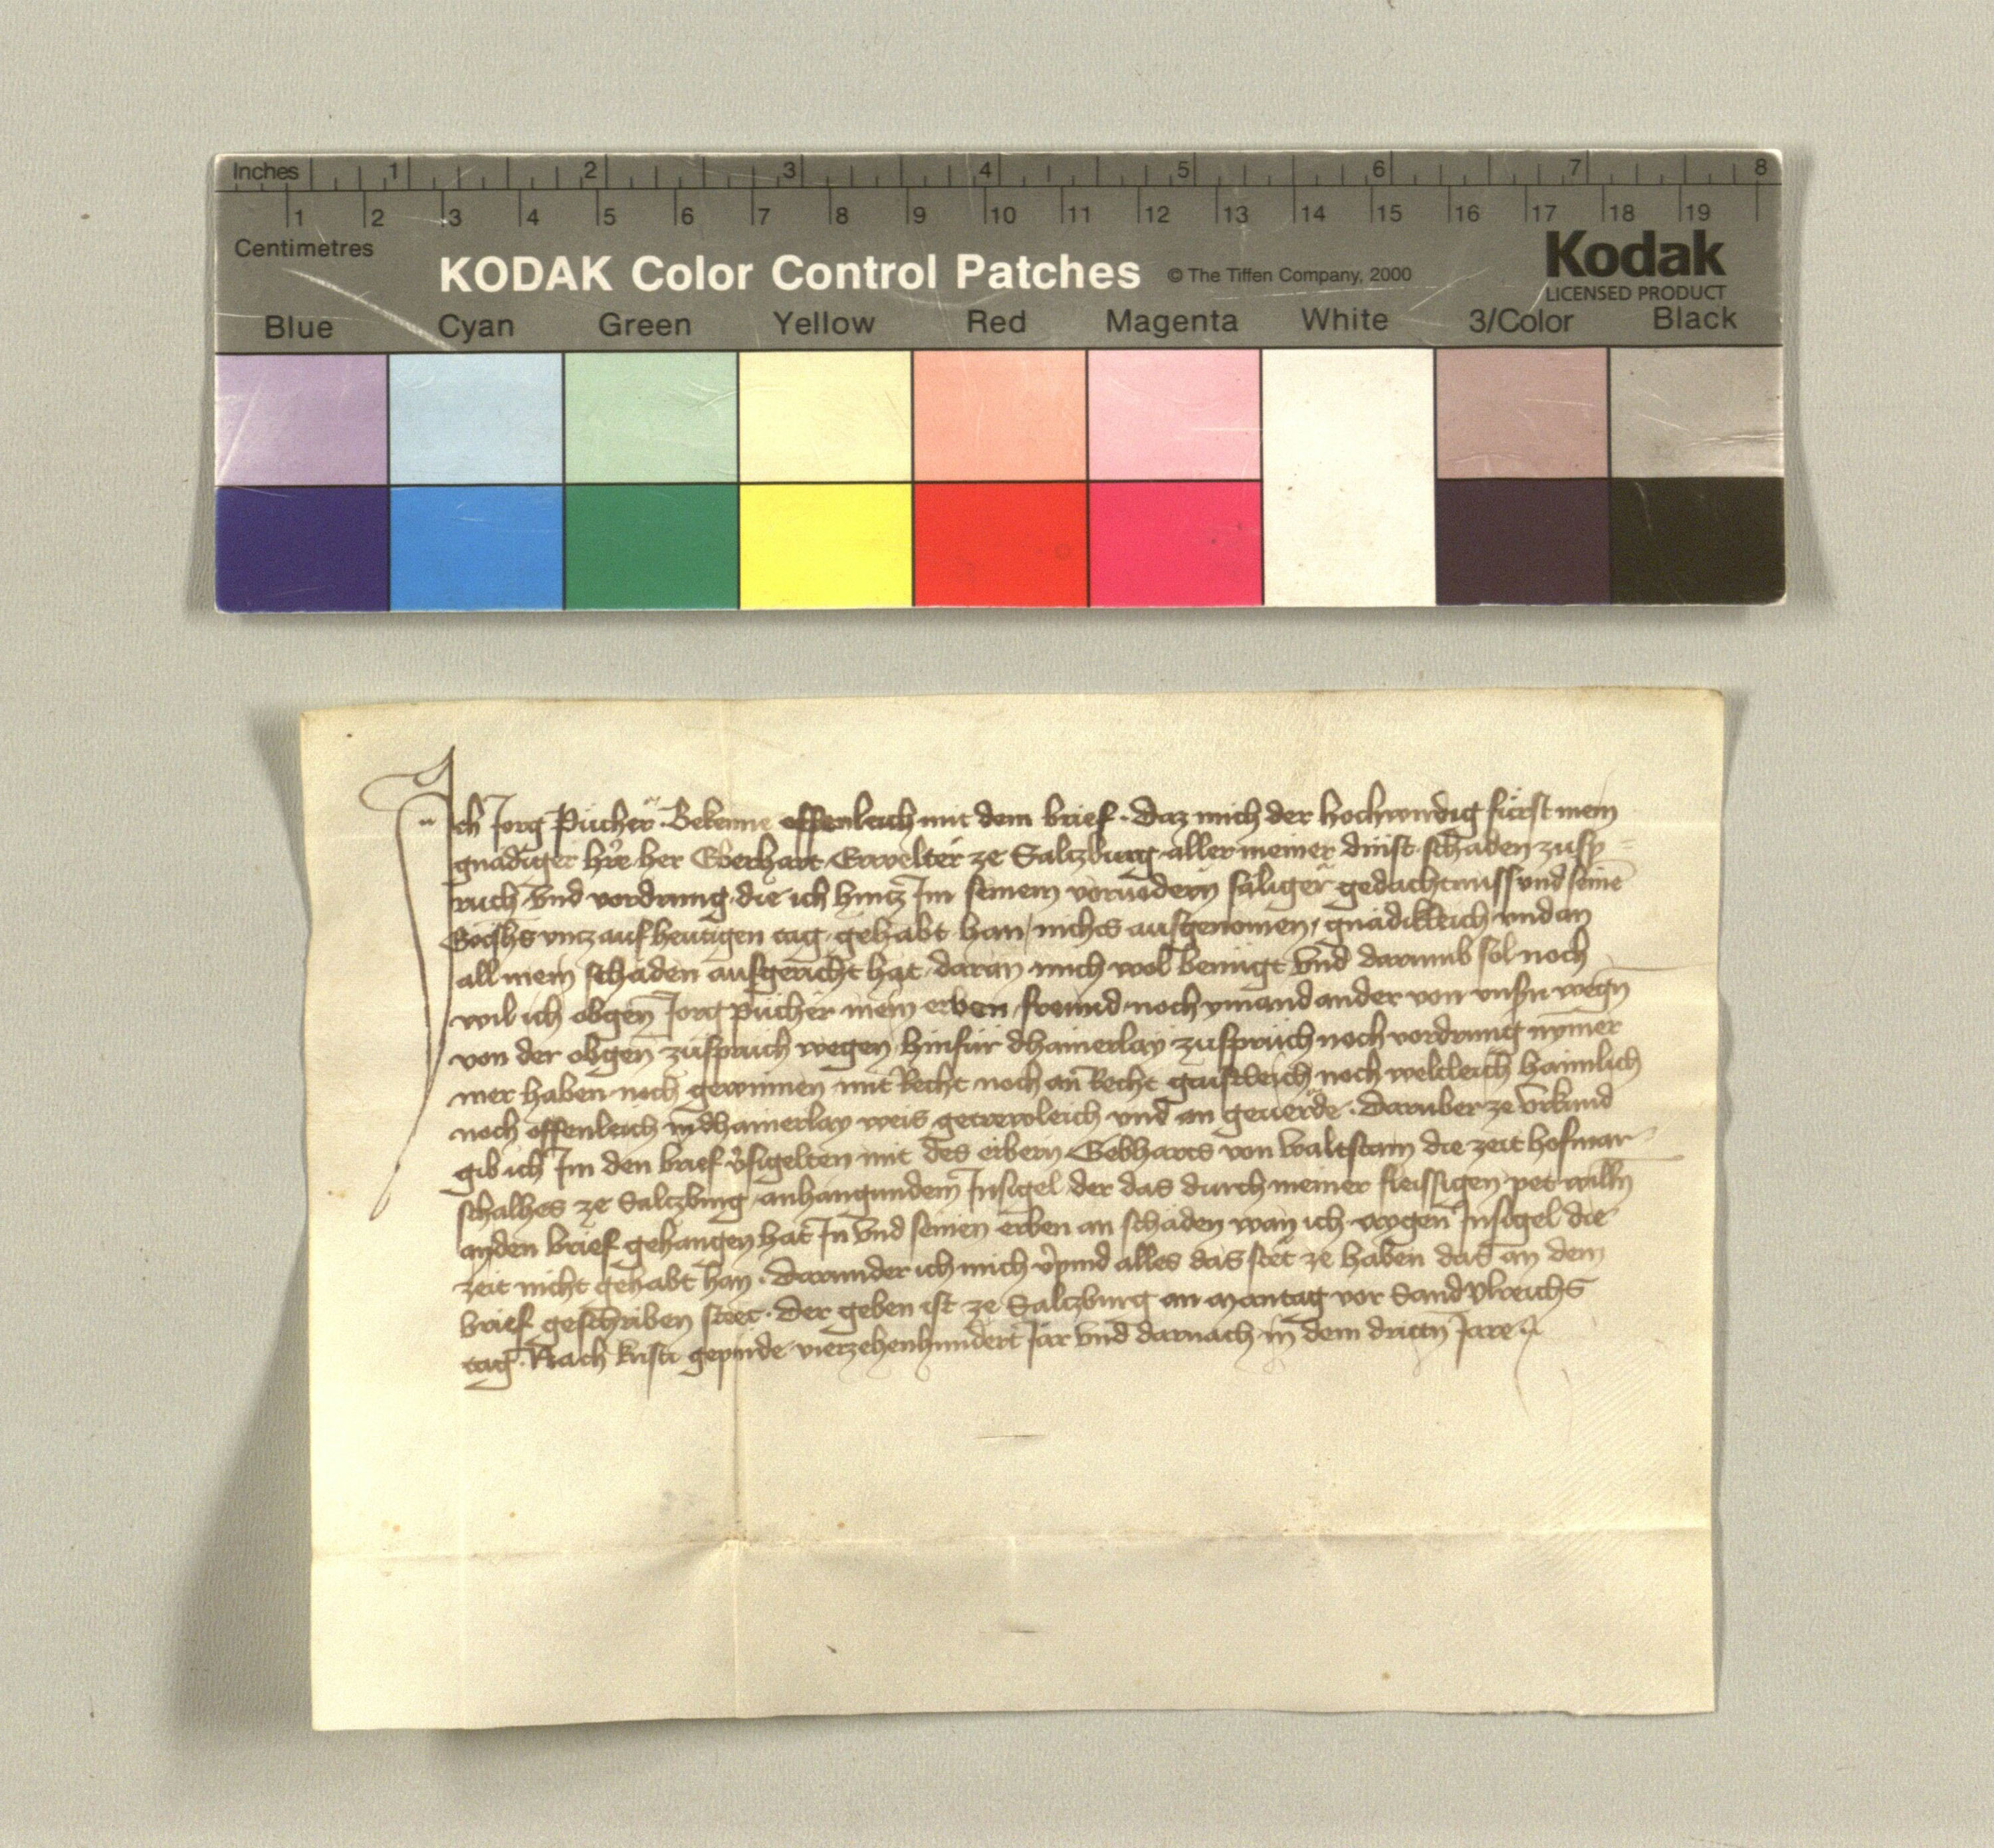 Inches 1 2 3 4 5 6 7 8
1 2 3 4 5 6 7 8 9 10 11 12 13 14 15 16 17 18 19
Centimetres
KODAK Color Control Patches © The Tiffen Company, 2000 Kodak
LICENSED PRODUCT
Blue Cyan Green Yellow Red Magenta White 3/Color Black
Ich Jorg Pücher Bekenne offenleich mit dem brief. Daz mich der hochwirdig fürst mein
gnädiger hr̄e her Eberhart Erwelter ze Saltzburg aller meiner dinst schäden zusp=
ruch vnd vordrung die ich hintz Im seinem voruodern säliger gedächtnuss vnd seinē
Gotzhs vntz auf heutigen tag gehabt han, nichts ausgenomen, gnädikleich vnd an
all mein schäden ausgericht hat daran mich wol benügt vnd darumb sol noch
wil ich obgen̄ Jorg pücher mein erben freund noch ymand ander von vnsn̄ wegn̄
von der obgen̄ zuspruch wegen hinfür dhainerlay zuspruch noch vordrung nymer
mer haben noch gewinnen mit Recht noch an Recht gaistleich noch weltleich haimlich
noch offenleich in dhainerlay weis getrewleich vnd an geuerde. Daruber ze vrkund
gib ich Im den brief v̄sigelten mit des erbern Gebharts von waltstain die zeit hofmar=
schalhes ze Saltzburg anhangundem Insigel der das durch meiner fleissigen pet willn̄
an den brief gehangen hat In vnd seinen erben an schaden wan ich aygen Insigel die
zeit nicht gehabt han. Darunder ich mich v̄pind alles das stet ze haben das an dem
brief geschriben stet. Der geben ist ze Saltzburg an Mantag vor Sand Vlreichs
tag. Nach kristi gepürde vierzehenhundert Jar vnd darnach in dem drittn̄ Jare